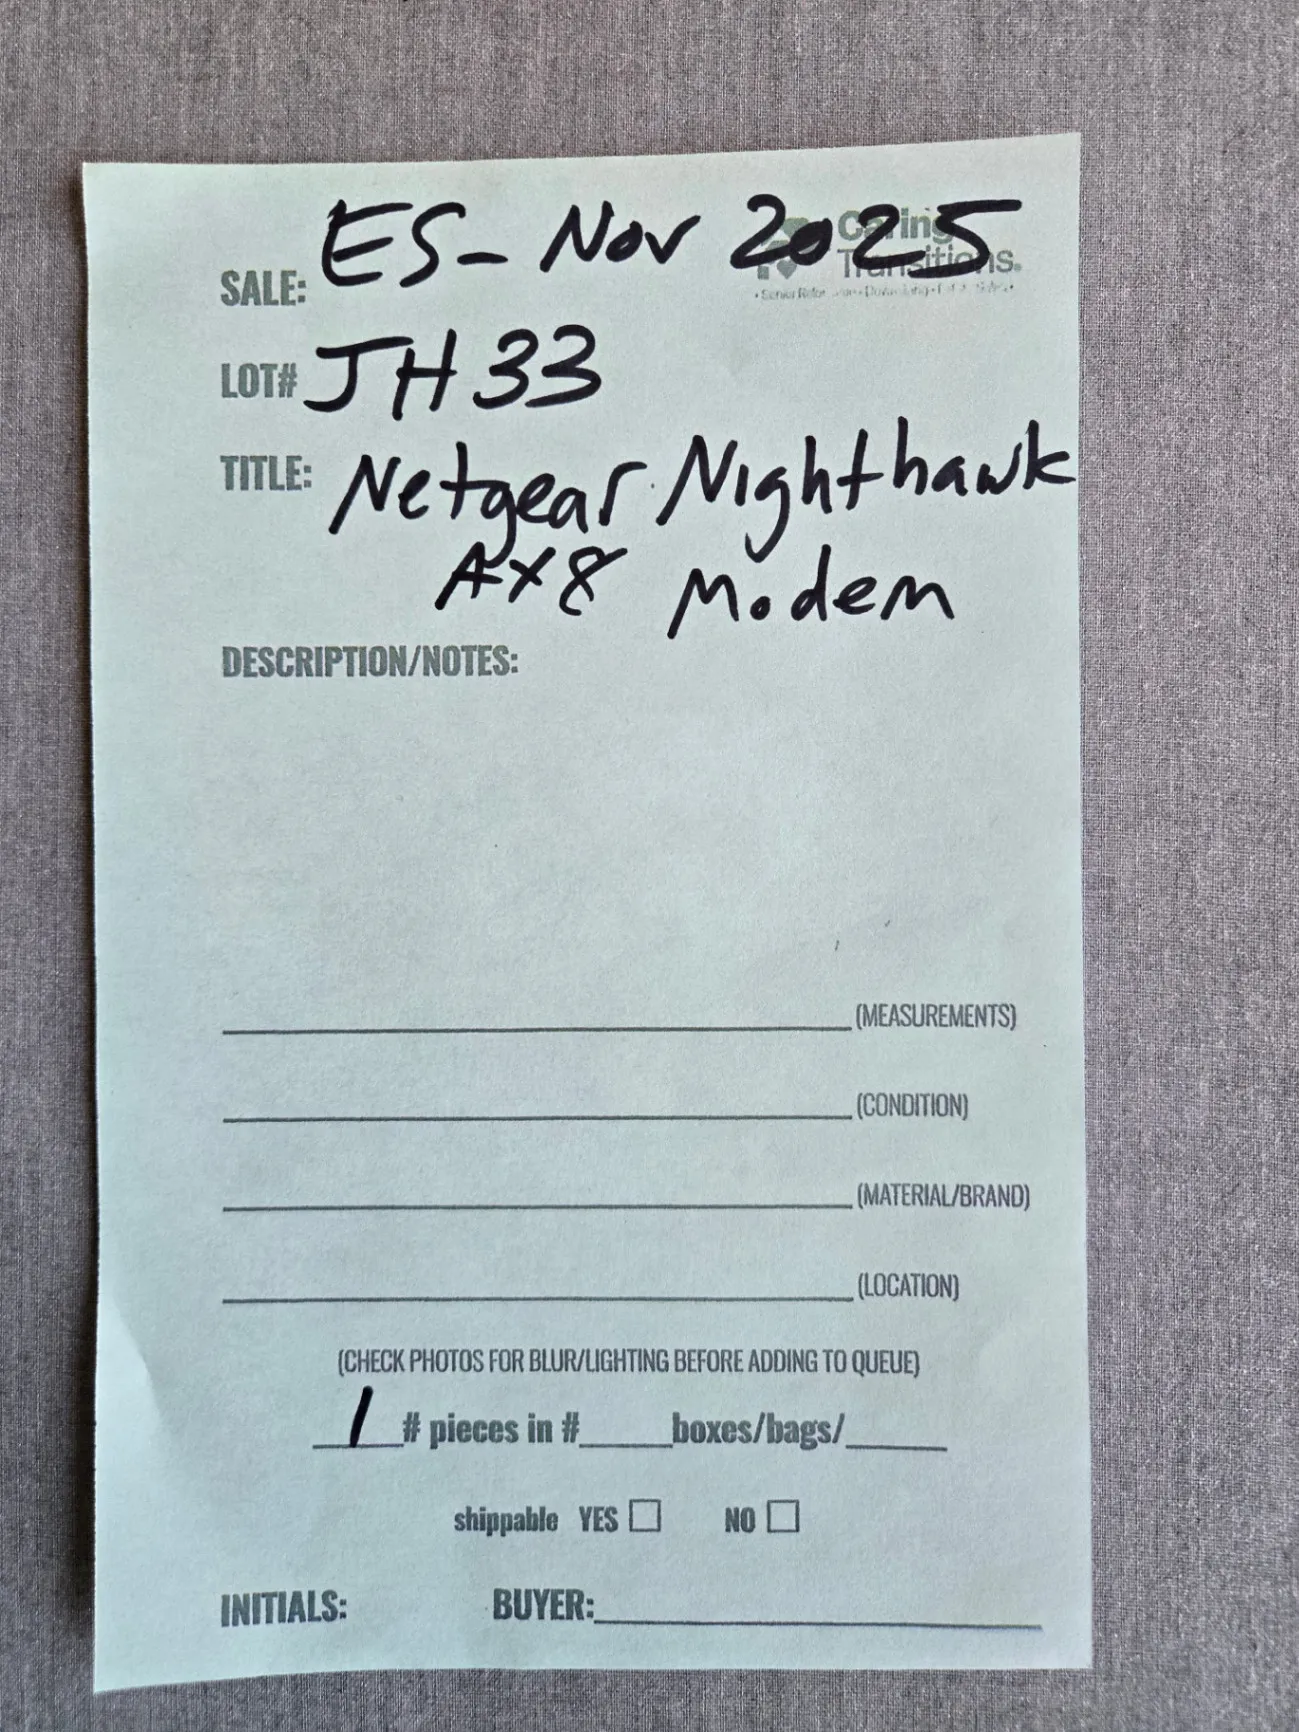 SALE: ES- Nov 2025
Caring
Transitions®
LOT# JH33
TITLE: Netgear Nighthawk
AX8 Modem
DESCRIPTION/NOTES:
(MEASUREMENTS)
(CONDITION)
(MATERIAL/BRAND)
(LOCATION)
(CHECK PHOTOS FOR BLUR/LIGHTING BEFORE ADDING TO QUEUE)
1 # pieces in # boxes/bags/
shippable YES NO
INITIALS: BUYER: